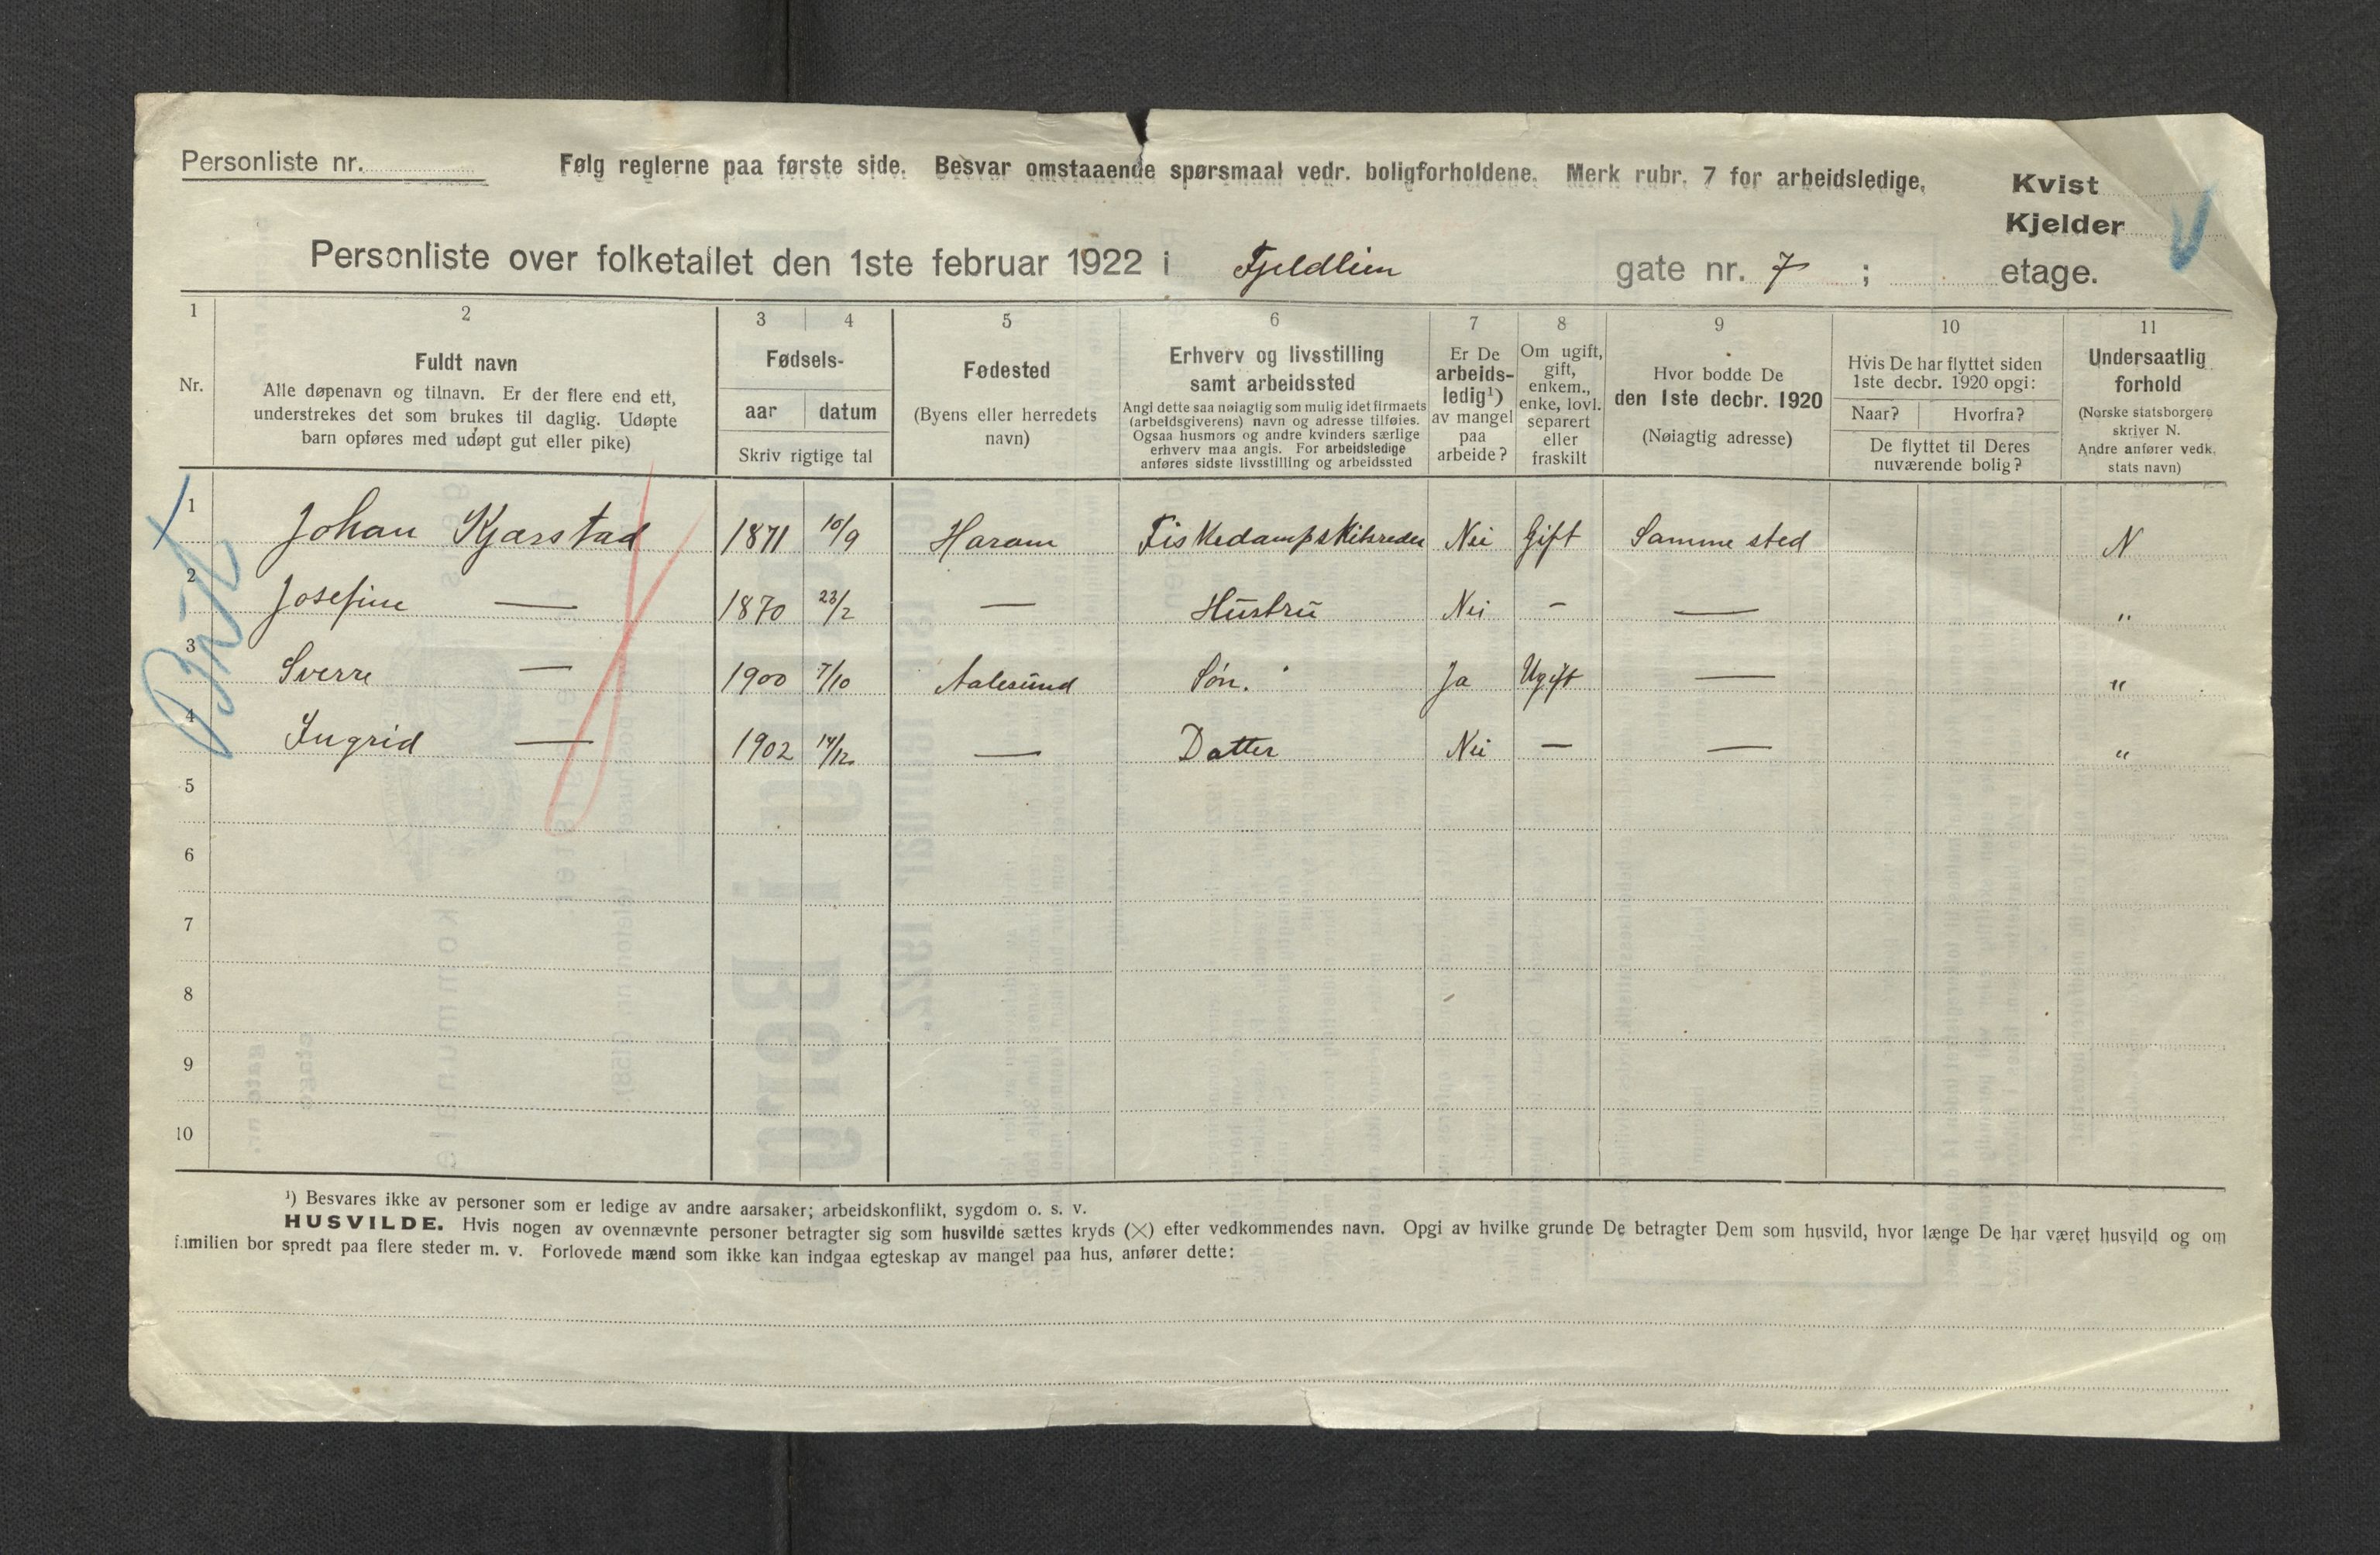 Personliste nr. Følg reglerne paa første side. Besvar omstaaende spørsmaal vedr. boligforholdene. Merk rubr. 7 for arbeidsledige.
Kvist
Kjelder
Personliste over folketallet den 1ste februar 1922 i Fjeldlien gate nr. 7 ; etage.
1 2 3 4 5 6 7 8 9 10 11
Nr.
Fuldt navn
Alle døpenavn og tilnavn. Er der flere end ett,
understrekes det som brukes til daglig. Udøpte
barn opføres med udøpt gut eller pike)
Fødsels-
aar datum
Skriv rigtige tal
Fødested
(Byens eller herredets
navn)
Erhverv og livsstilling
samt arbeidssted
Angi dette saa nøiagtig som mulig idet firmaets
(arbeidsgiverens) navn og adresse tilføies.
Ogsaa husmors og andre kvinders særlige
erhverv maa angis. For arbeidsledige
anføres sidste livsstilling og arbeidssted
Er De
arbeids-
ledig¹)
av mangel
paa
arbeide?
Om ugift,
gift,
enkem.,
enke, lovl.
separert
eller
fraskilt
Hvor bodde De
den 1ste decbr. 1920
(Nøiagtig adresse)
Hvis De har flyttet siden
1ste decbr. 1920 opgi:
Naar? Hvorfra?
De flyttet til Deres
nuværende bolig?
Undersaatlig
forhold
(Norske statsborgere
skriver N.
Andre anfører vedk.
stats navn)
1 Johan Kjærstad 1871 10/9 Haram Fiskedampskibsreder Nei Gift Samme sted N
2 Josefine — 1870 23/2 — Hustru Nei — — "
3 Sverre — 1900 7/10 Aalesund Søn. Ja Ugift — "
4 Ingrid — 1902 14/12 — Datter Nei — — "
5
6
7
8
9
10
¹) Besvares ikke av personer som er ledige av andre aarsaker; arbeidskonflikt, sygdom o. s. v.
HUSVILDE. Hvis nogen av ovennævnte personer betragter sig som husvilde sættes kryds (×) efter vedkommendes navn. Opgi av hvilke grunde De betragter Dem som husvild, hvor længe De har været husvild og om
familien bor spredt paa flere steder m. v. Forlovede mænd som ikke kan indgaa egteskap av mangel paa hus, anfører dette: